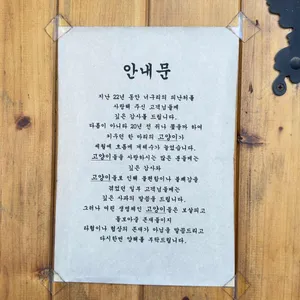 안내문
지난 22년 동안 너구리의 피난처를
사랑해 주신 고객님들께
깊은 감사를 드립니다.
다름이 아니라 20년 전 쥐나 쫓을까 하여
키우던 한 마리의 고양이가
세월에 흐름에 개체수가 늘었습니다.
고양이들을 사랑하시는 많은 분들께는
깊은 감사와
고양이들로 인해 불편함이나 불쾌감을
겪었던 일부 고객님들께는
깊은 사과의 말씀을 드립니다.
그러나 여린 생명체인 고양이들은 보살피고
돌보아줄 존재들이지
타협이나 협상의 존재가 아님을 말씀드리고
다시한번 양해를 부탁드립니다.